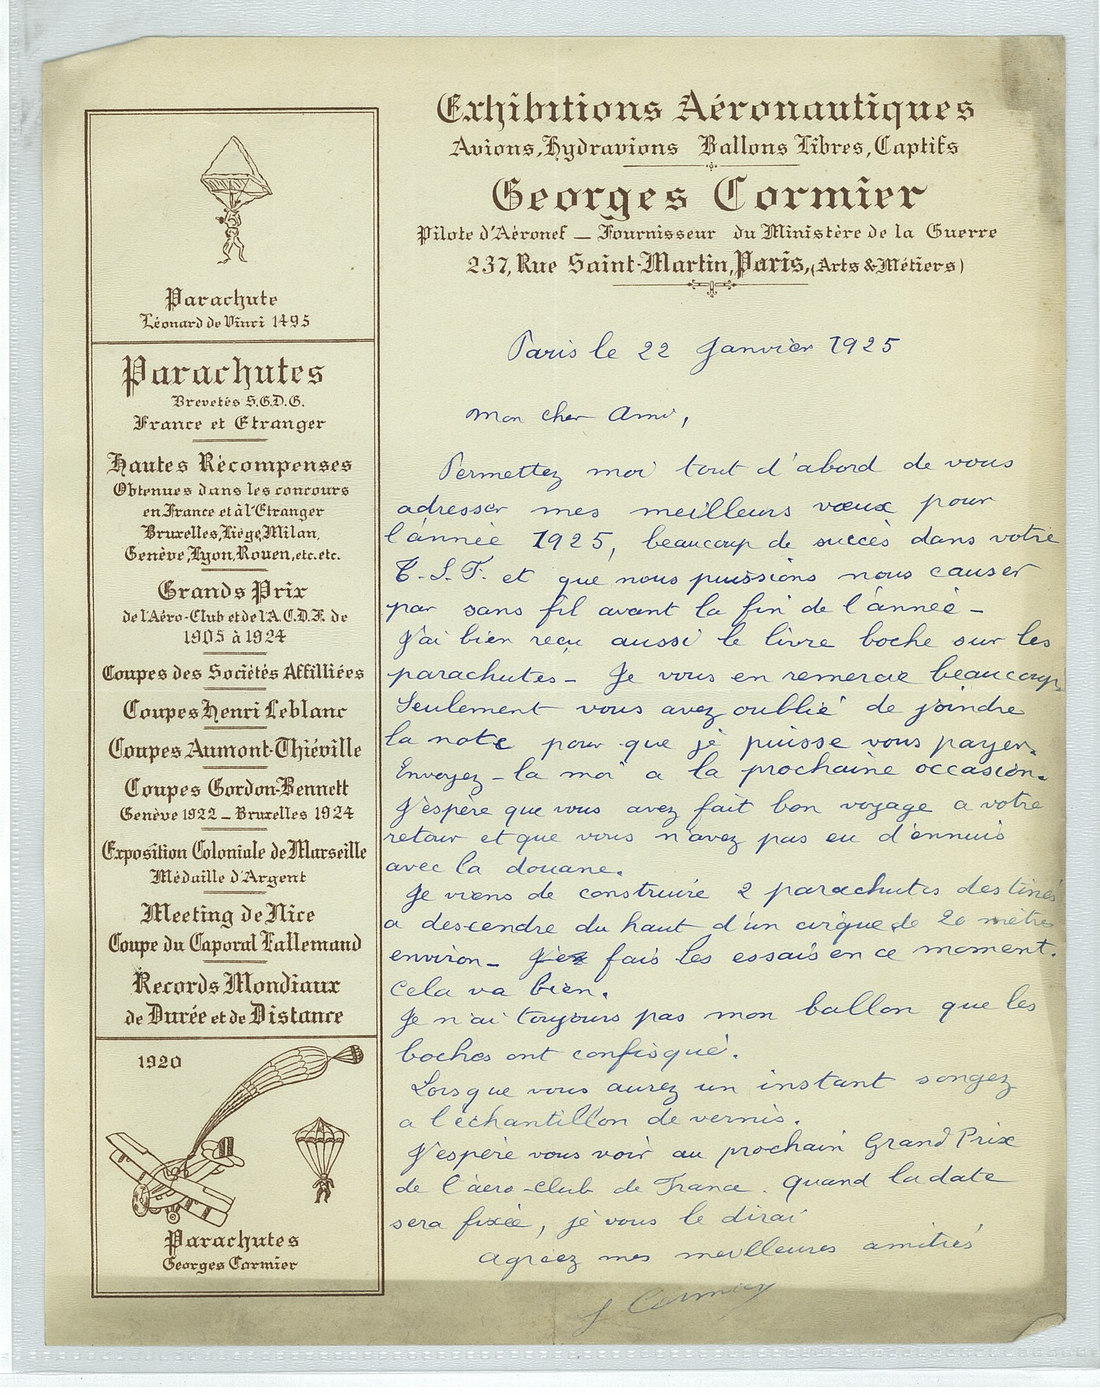 Exhibitions Aéronautiques
Avions, Hydravions Ballons Libres, Captifs
Georges Cormier
Pilote d'Aéronef — Fournisseur du Ministère de la Guerre
237, Rue Saint-Martin, Paris, (Arts & Métiers)
Parachute
Léonard de Vinci 1495
Parachutes
Brevetés S.G.D.G.
France et Etranger
Hautes Récompenses
Obtenues dans les concours
en France et à l'Etranger
Bruxelles, Liége, Milan,
Genève, Lyon, Rouen, etc. etc.
Grands Prix
de l'Aéro-Club et de l'A.C.D.F. de
1905 à 1924
Coupes des Sociétés Affilliées
Coupes Henri Leblanc
Coupes Aumont-Thiéville
Coupes Gordon-Bennett
Genève 1922 — Bruxelles 1924
Exposition Coloniale de Marseille
Médaille d'Argent
Meeting de Nice
Coupe du Caporal Lallemand
Records Mondiaux
de Durée et de Distance
1920
Parachutes
Georges Cormier
Paris le 22 Janvier 1925
Mon cher Ami,
Permettez moi tout d'abord de vous
adresser mes meilleurs vœux pour
l'année 1925, beaucoup de succès dans votre
T.S.F. et que nous puissions nous causer
par sans fil avant la fin de l'année -
J'ai bien reçu aussi le livre boche sur les
parachutes - Je vous en remercie beaucoup
Seulement vous avez oublié de joindre
la note pour que je puisse vous payer.
Envoyez-la moi a la prochaine occasion.
J'espère que vous avez fait bon voyage a votre
retour et que vous n'avez pas eu d'ennuis
avec la douane.
Je viens de construire 2 parachutes destinés
a descendre du haut d'un cirque de 20 mètres
environ - fais les essais en ce moment.
Cela va bien.
Je n'ai toujours pas mon ballon que les
boches ont confisqué.
Lorsque vous aurez un instant songez
a l'échantillon de vernis.
J'espère vous voir au prochain Grand Prix
de l'aéro-club de France. Quand la date
sera fixée, je vous le dirai
Agréez mes meilleures amitiés
G Cormier